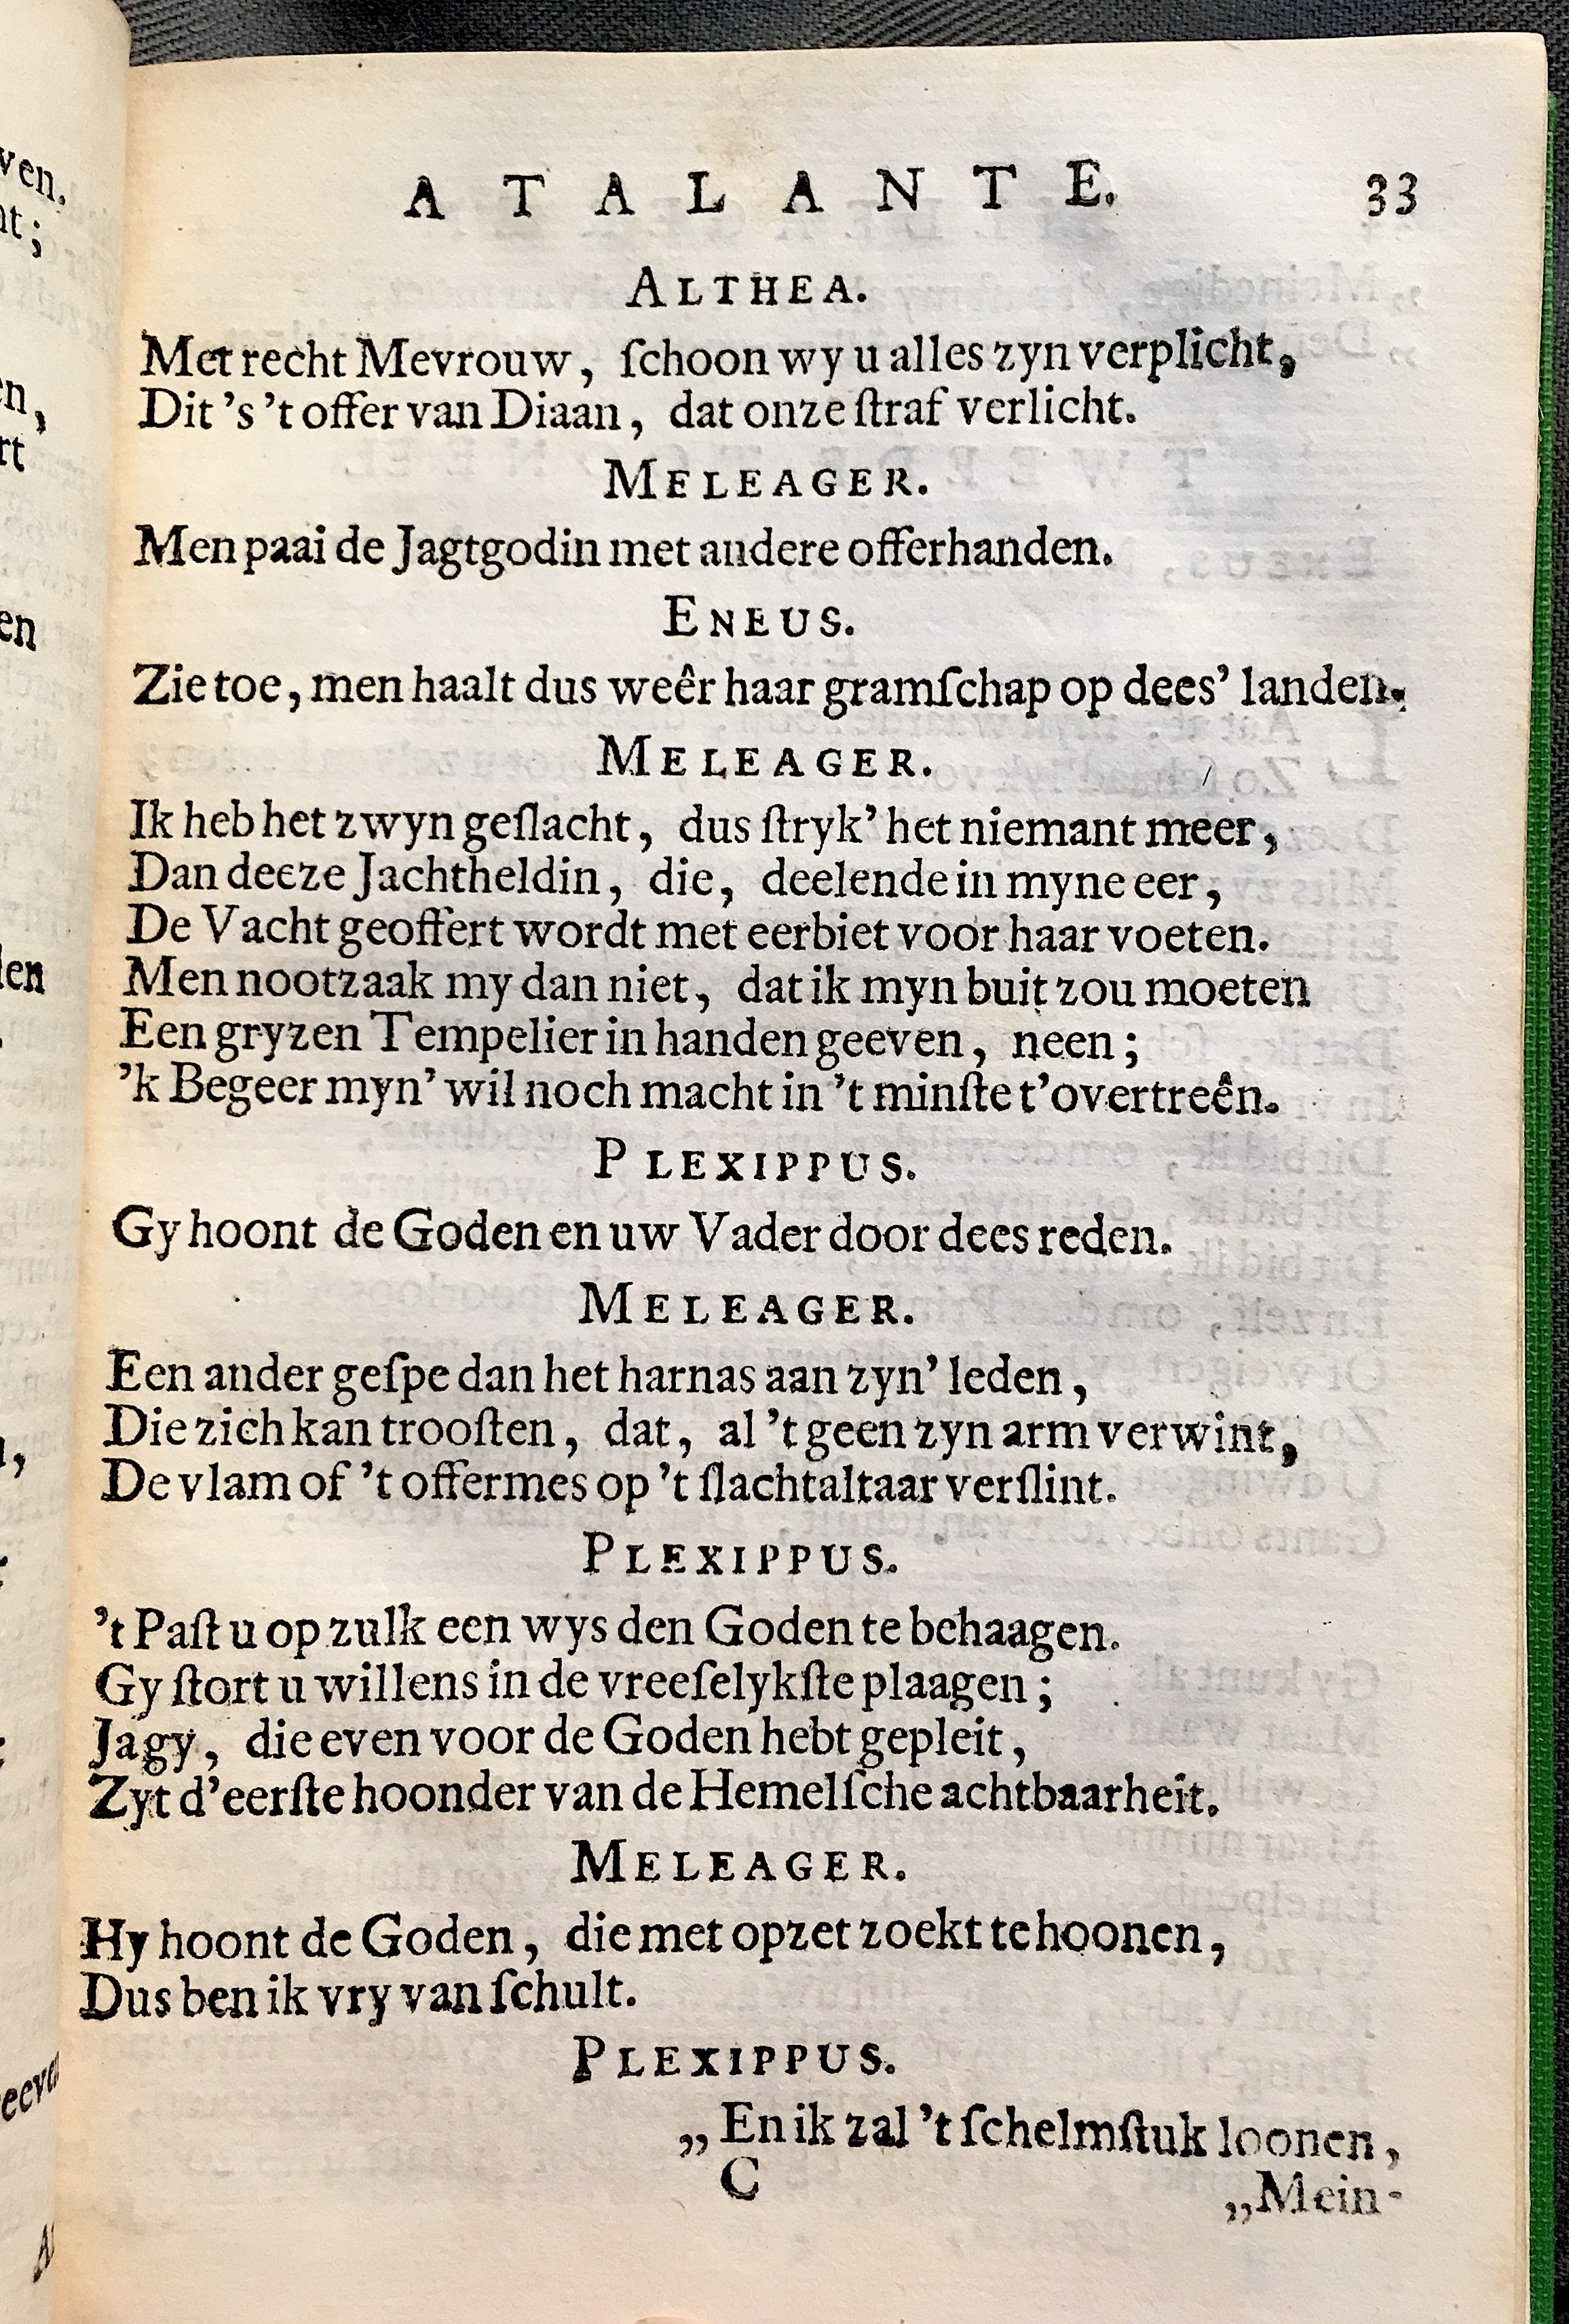 ATALANTE. 33
ALTHEA.
Met recht Mevrouw, ſchoon wy u alles zyn verplicht,
Dit 's 't offer van Diaan, dat onze ſtraf verlicht.
MELEAGER.
Men paai de Jagtgodin met andere offerhanden.
ENEUS.
Zie toe, men haalt dus weêr haar gramſchap op dees' landen.
MELEAGER.
Ik heb het zwyn geſlacht, dus ſtryk' het niemant meer,
Dan deeze Jachtheldin, die, deelende in myne eer,
De Vacht geoffert wordt met eerbiet voor haar voeten.
Men nootzaak my dan niet, dat ik myn buit zou moeten
Een gryzen Tempelier in handen geeven, neen;
'k Begeer myn' wil noch macht in 't minſte t'overtreên.
PLEXIPPUS.
Gy hoont de Goden en uw Vader door dees reden.
MELEAGER.
Een ander geſpe dan het harnas aan zyn' leden,
Die zich kan trooſten, dat, al 't geen zyn arm verwint,
De vlam of 't offermes op 't ſlachtaltaar verſlint.
PLEXIPPUS.
't Paſt u op zulk een wys den Goden te behaagen.
Gy ſtort u willens in de vreeſelykſte plaagen;
Ja gy, die even voor de Goden hebt gepleit,
Zyt d'eerſte hoonder van de Hemelſche achtbaarheit.
MELEAGER.
Hy hoont de Goden, die met opzet zoekt te hoonen,
Dus ben ik vry van ſchult.
PLEXIPPUS.
„En ik zal 't ſchelmſtuk loonen,
C
„Mein-